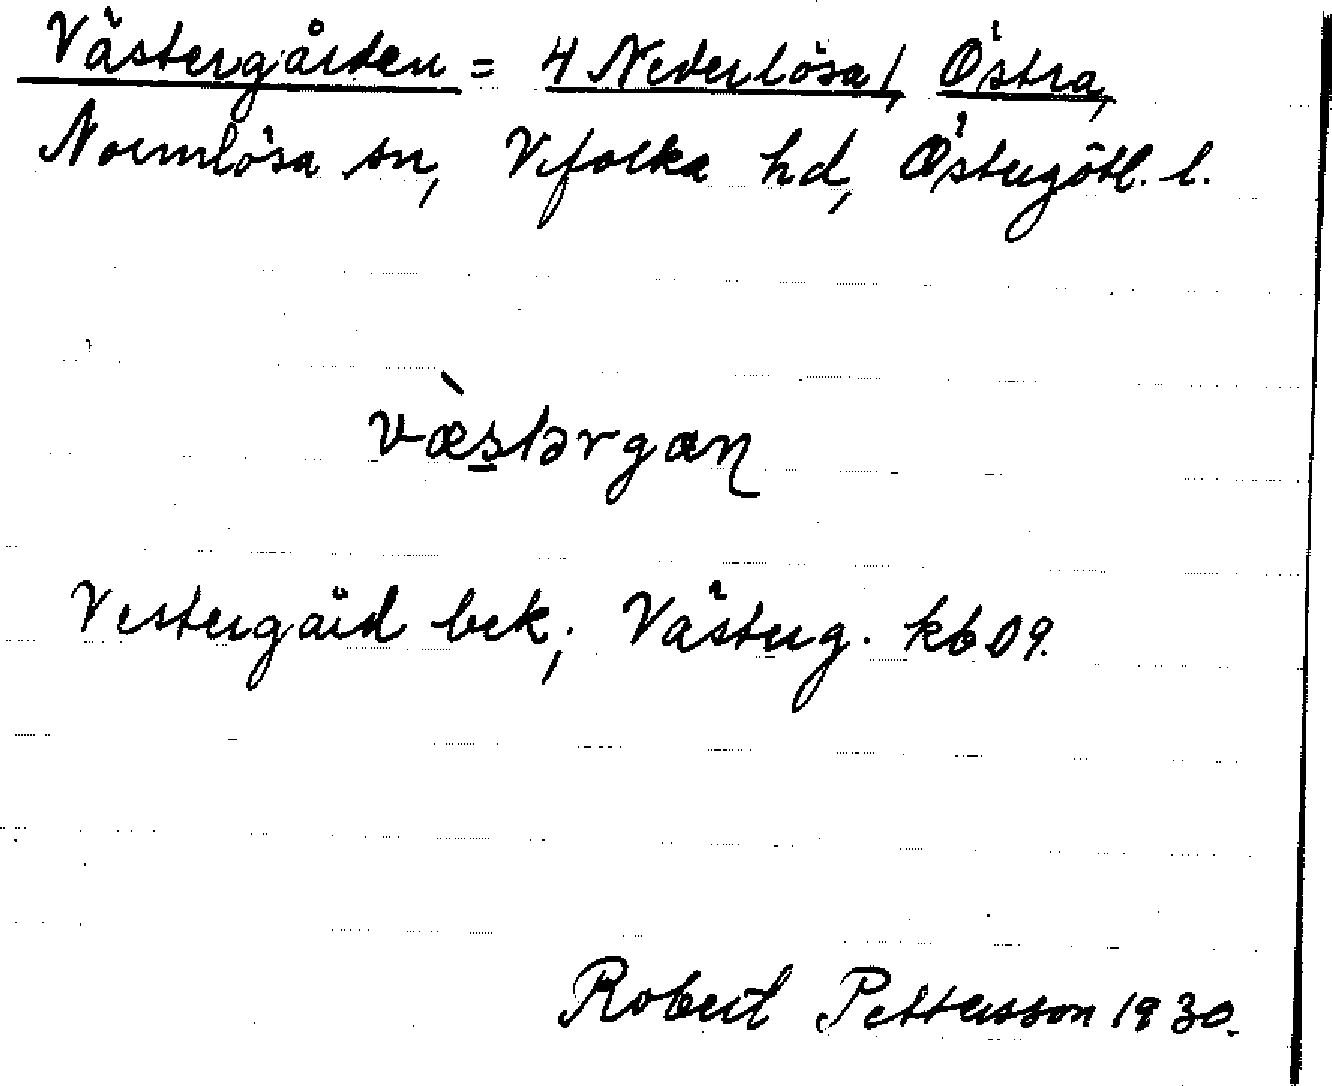 Västergården = 4 Nederlösa /, Östra,
Normlösa sn, Vifolka hd, Östergötl. l.
væ̀s̠tərgæɳ
Vestergård bek; Västerg. kb 09.
Robert Pettersson 1930.